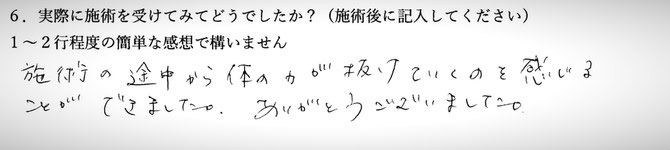 ６．実際に施術を受けてみてどうでしたか？（施術後に記入してください）
１～２行程度の簡単な感想で構いません
施術の途中から体の力が抜けていくのを感じる
ことができました。ありがとうございました。